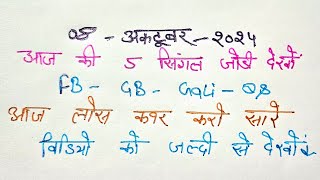 ०८ - अकटूबर - २०२५
आज की 5 सिंगल जोडी देखें
FB - GB - Gali - DS
आज लोस कवर करो सारे
विडियो को जल्दी से देखों